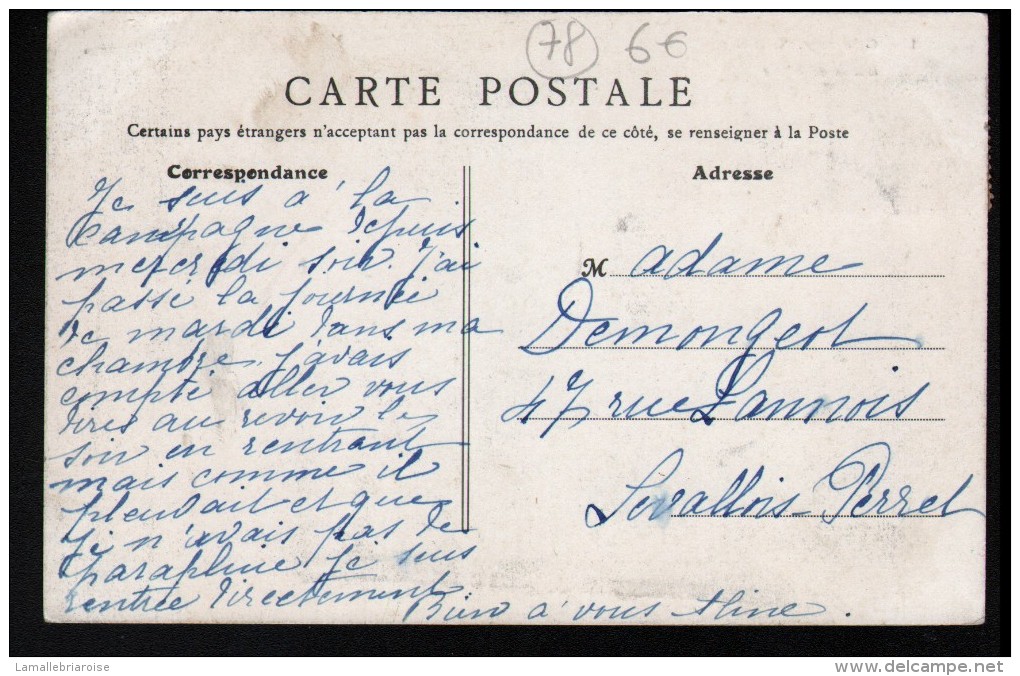 78 6€
CARTE POSTALE
Certains pays étrangers n'acceptant pas la correspondance de ce côté, se renseigner à la Poste
Correspondance
Je suis à la
campagne depuis
mercredi soir. J'ai
passé la journée
de mardi dans ma
chambre. J'avais
compté aller vous
dires au revoir le
soir en rentrant
mais comme il
pleuvait et que
je n'avais pas de
parapluie je suis
rentrée directement
Bien à vous Aline.
Adresse
Madame
Demongeot
47 rue Lannois
Levallois-Perret
Lamallebriaroise
www.delcampe.net